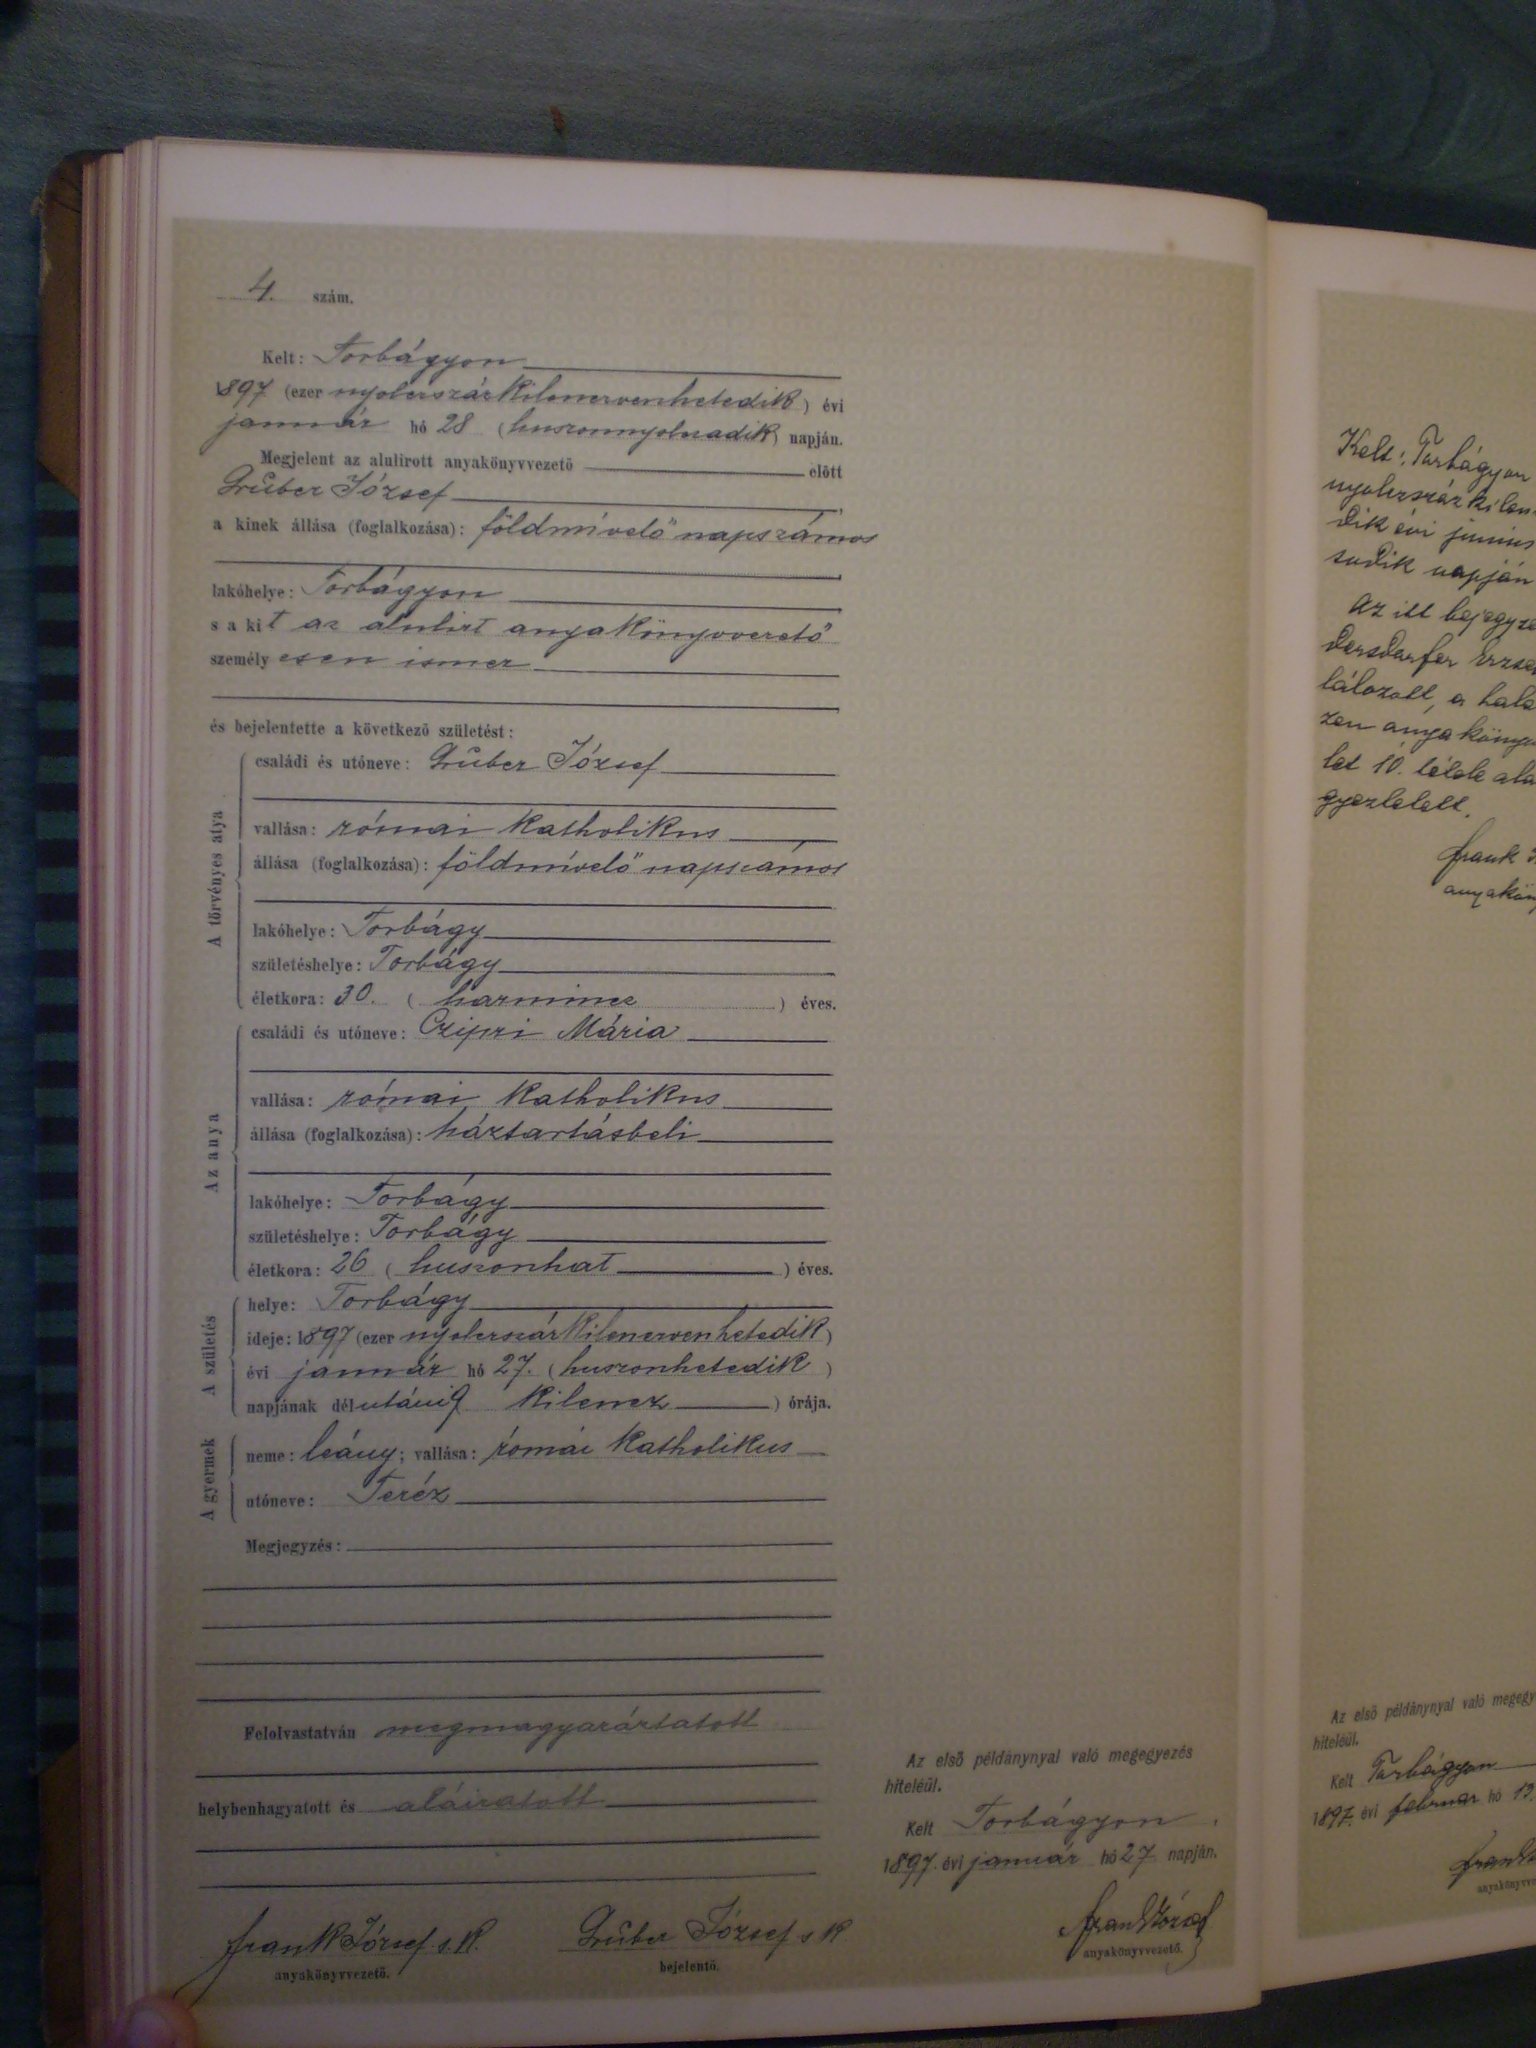 4. szám.
Kelt: Torbágyon
1897 (ezer nyolczszázkilenczvenhetedik) évi
január hó 28 (huszonnyolczadik) napján.
Megjelent az alulirott anyakönyvvezető előtt
Gruber József,
a kinek állása (foglalkozása): földmívelő napszámos
lakóhelye: Torbágyon
s a kit az alulirt anyakönyvvezető
személyesen ismer
és bejelentette a következő születést:
A törvényes atya
családi és utóneve: Gruber József
vallása: római katholikus
állása (foglalkozása): földmívelő napszámos
lakóhelye: Torbágy
születéshelye: Torbágy
életkora: 30. (harmincz) éves.
Az anya
családi és utóneve: Czipri Mária
vallása: római katholikus
állása (foglalkozása): háztartásbeli
lakóhelye: Torbágy
születéshelye: Torbágy
életkora: 26 (huszonhat) éves.
A születés
helye: Torbágy
ideje: 1897 (ezer nyolczszázkilenczvenhetedik)
évi január hó 27. (huszonhetedik)
napjának délutáni 9 kilencz) órája.
A gyermek
neme: leány; vallása: római katholikus
utóneve: Teréz
Megjegyzés:
Felolvastatván megmagyaráztatott
helybenhagyatott és aláiratott
Frank József s. k.
anyakönyvvezető.
Gruber József s k
bejelentő.
Az első példánynyal való megegyezés
hiteléül.
Kelt Torbágyon
1897. évi január hó 27 napján.
Frank József
anyakönyvvezető.
Kelt: Torbágyon
nyolczszáz kilen
dik évi június
napján
Az itt bejegyze
dersdorfer Erzse
lálozott, a halá
zen anyakönyv
let 10. tétele ala
gyeztetett.
Frank J
anyakön
Az első példánynyal való megegy
hiteléül.
Kelt Torbágyon
1897. évi február hó 13.
Frank
anyakönyvve